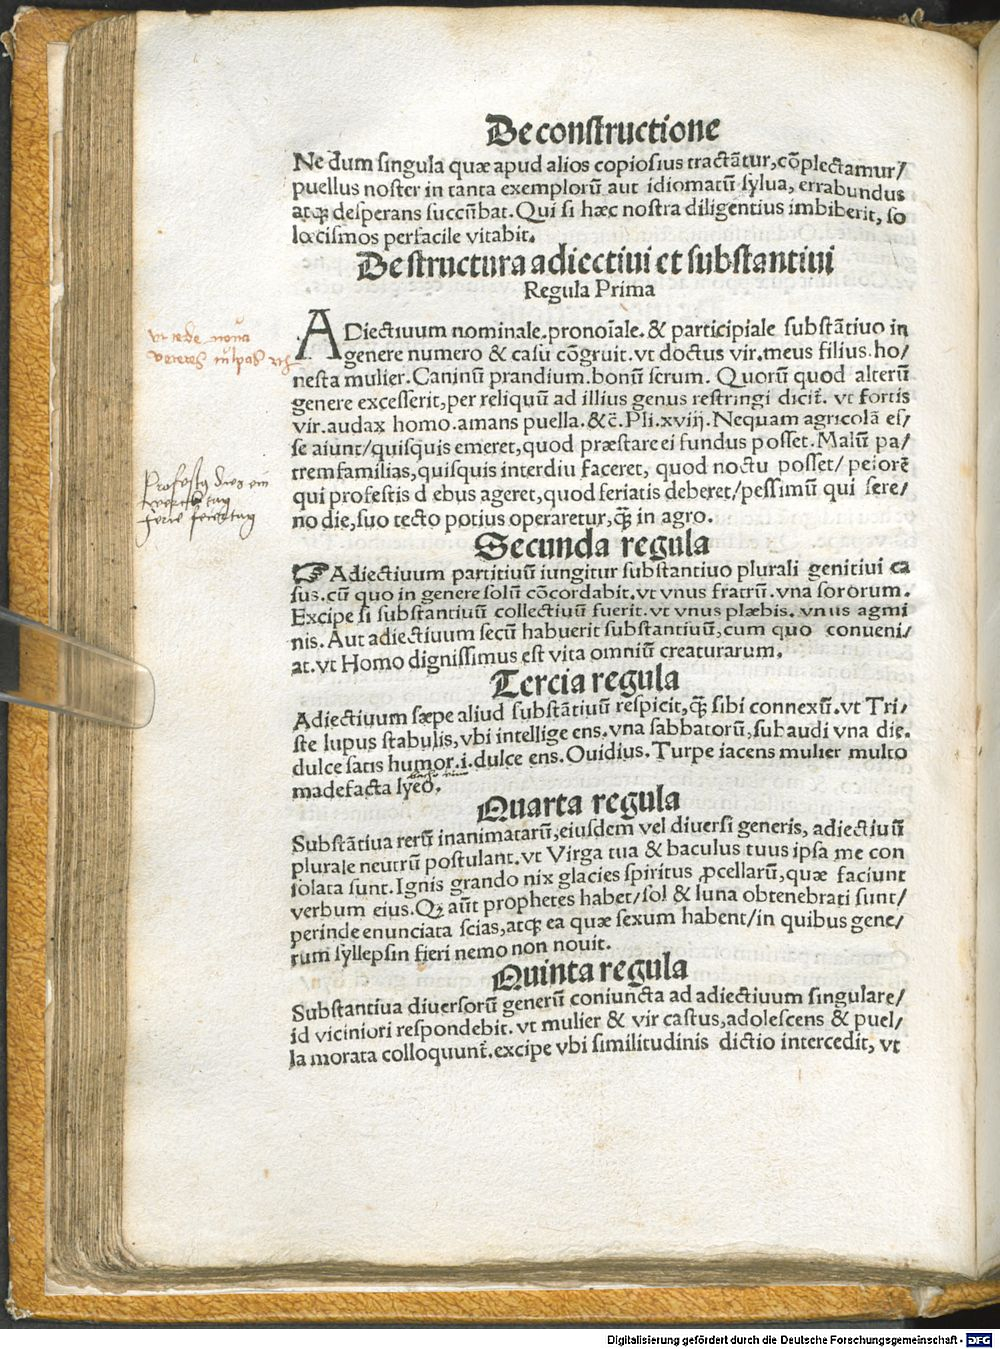 De constructione
Ne dum singula quæ apud alios copiosius tractãtur, cõplectamur/
puellus noster in tanta exemplorũ aut idiomatũ sylua, errabundus
atqꝫ desperans succũbat. Qui si hæc nostra diligentius imbiberit, so
lœcismos perfacile vitabit.
De structura adiectiui et substantiui
Regula Prima
ADiectiuum nominale. pronoĩale. & participiale substãtiuo in
genere numero & casu cõgruit. vt doctus vir. meus filius. ho/
nesta mulier. Caninũ prandium. bonũ scrum. Quorũ quod alterũ
genere excesserit, per reliquũ ad illius genus restringi dicit̃. vt fortis
vir. audax homo. amans puella. &c̃. Pli. xviij. Nequam agricolã es/
se aiunt/ quisquis emeret, quod præstare ei fundus posset. Malũ pa/
tremfamilias, quisquis interdiu faceret, quod noctu posset/ peiorẽ
qui profestis d ebus ageret, quod feriatis deberet/ pessimũ qui sere/
no die, suo tecto potius operaretur, q̃ꝫ in agro.
Profesty dies ein
werchtag
ferie feiertag
Secunda regula
☞ Adiectiuum partitiuũ iungitur substantiuo plurali genitiui ca
sus. cũ quo in genere solũ cõcordabit. vt vnus fratrũ. vna sororum.
Excipe si substantiuũ collectiuũ fuerit. vt vnus plæbis. vnus agmi
nis. Aut adiectiuum secũ habuerit substantiuũ, cum quo conueni/
at. vt Homo dignissimus est vita omniũ creaturarum.
Tercia regula
Adiectiuum sæpe aliud substãtiuũ respicit, q̃ꝫ sibi connexũ. vt Tri/
ste lupus stabulis, vbi intellige ens. vna sabbatorũ, subaudi vna die.
dulce satis humor. i. dulce ens. Ouidius. Turpe iacens mulier multo
madefacta lyeo.
Quarta regula
Substãtiua rerũ inanimatarũ, eiusdem vel diuersi generis, adiectiuũ
plurale neutrũ postulant. vt Virga tua & baculus tuus ipsa me con
solata sunt. Ignis grando nix glacies spiritus ꝓcellarũ, quæ faciunt
verbum eius. Qꝫ aũt prophetes habet/ sol & luna obtenebrati sunt/
perinde enunciata scias, atqꝫ ea quæ sexum habent/ in quibus gene/
rum syllepsin fieri nemo non nouit.
Quinta regula
Substantiua diuersorũ generũ coniuncta ad adiectiuum singulare/
id viciniori respondebit. vt mulier & vir castus, adolescens & puel/
la morata colloquunt̃. excipe vbi similitudinis dictio intercedit, vt
Digitalisierung gefördert durch die Deutsche Forschungsgemeinschaft - DFG